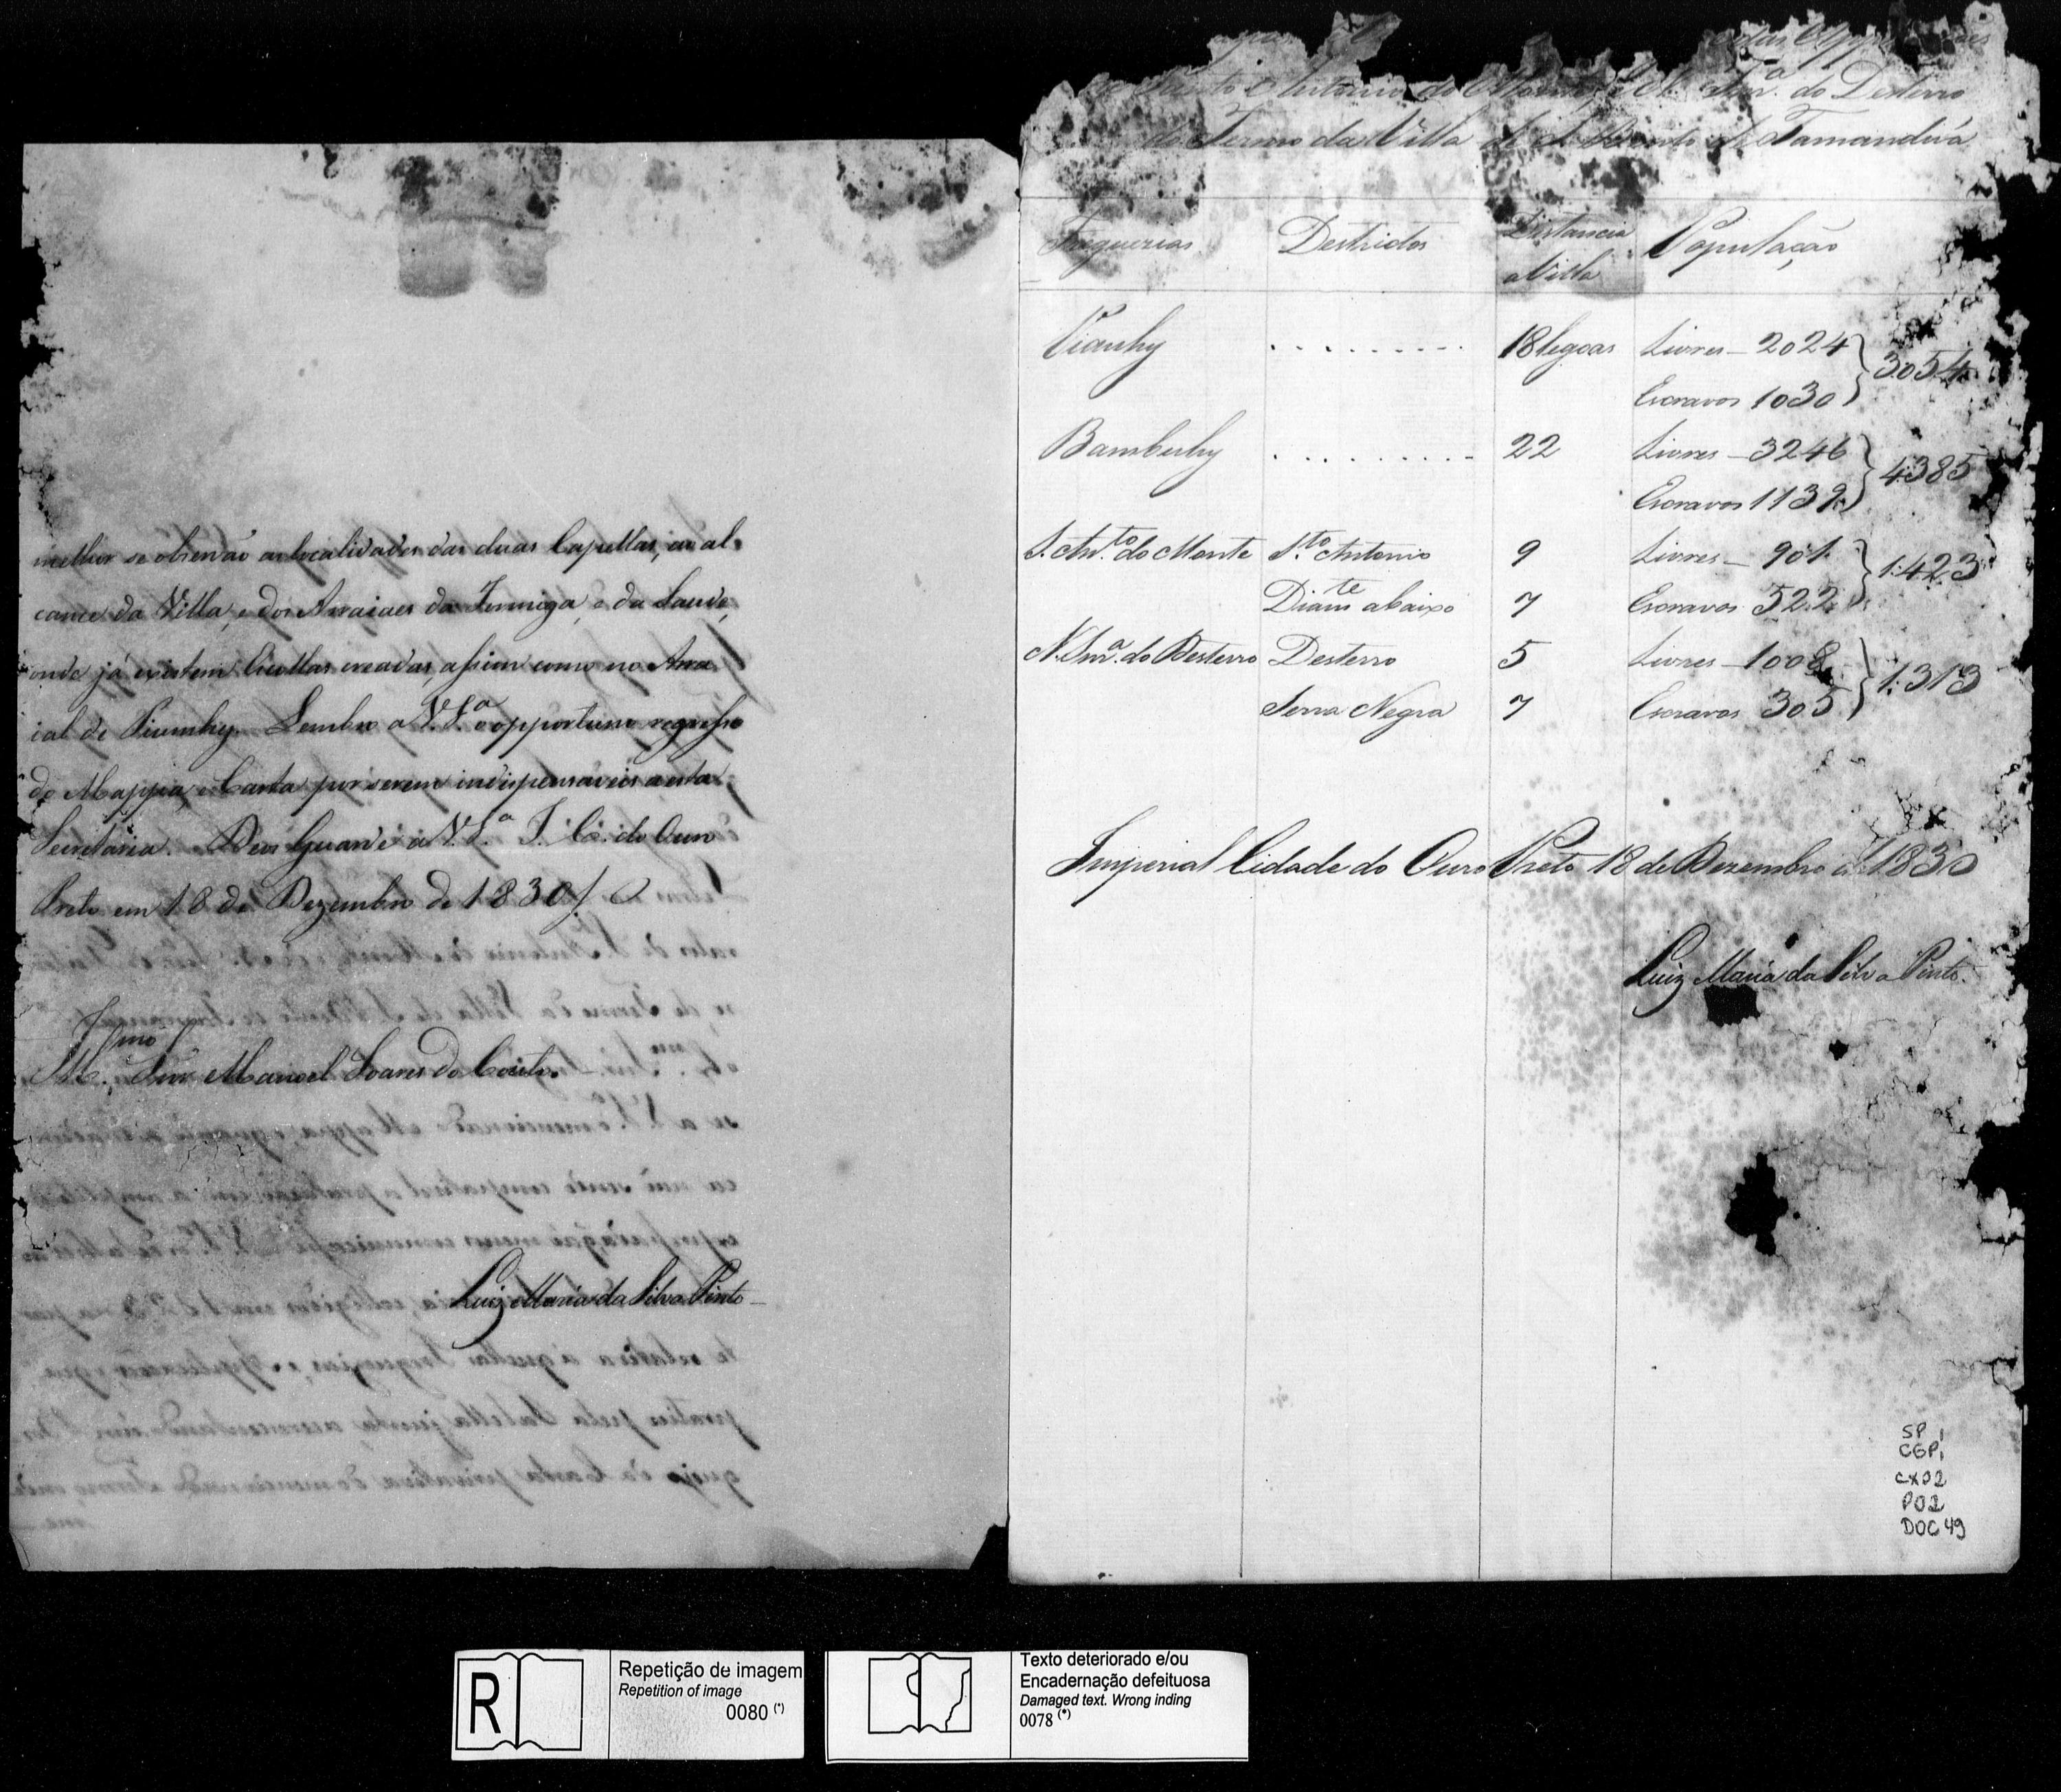 melhor se observão as localidades das duas Capellas, as al-
cance da Villa, e dos Arraiaes da Formiga, e da Saude,
onde já existem Escollas creadas, assim como no Arra-
ial de Piumhy. Lembro a V.S.ª o opportuno regresso
do Mappa, e Carta por serem indispensaveis a esta
Secretaria. Deos Guarde a V.S.ª I. C. do Ouro
Preto em 18 de Dezembro de 1830
Illmo
Snr. Manoel Soares do Couto.
Luiz Maria da Silva Pinto
das
de Santo Antonio do Monte, e N. Snrª. do Desterro
do Termo da Villa de S. Bento de Tamanduá
Freguezias Destrictos Distancia a Villa População
Piauhy . . . . . . . . 18 legoas Livres – 2024 } 3054
Escravos 1030
Bambuhy . . . . . . . . . 22 Livres – 3246 } 4385
Escravos 1139
S. Antº. do Monte Sto. Antonio 9 Livres – 901 } 1:423
Diamte abaixo 7 Escravos 522
N. Snrª. do Desterro Desterro 5 Livres – 1008 } 1:313
Serra Negra 7 Escravos 305
Imperial Cidade do Ouro Preto 18 de Dezembro de 1830
Luiz Maria da Silva Pinto.
SP 1
CGP1
CX02
P02
DOC 49
R
Repetição de imagem
Repetition of image
0080 (*)
Texto deteriorado e/ou
Encadernação defeituosa
Damaged text. Wrong inding
0078 (*)